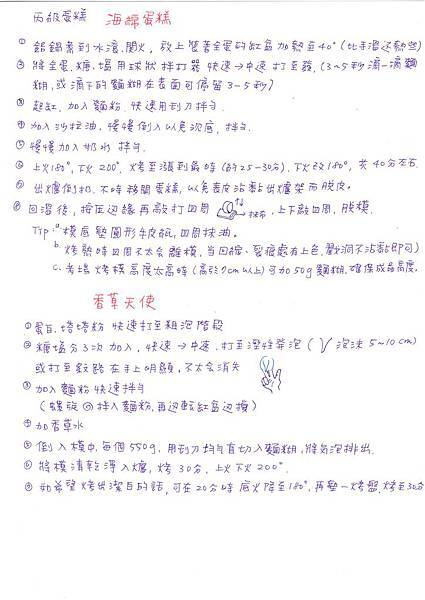 丙級蛋糕 海綿蛋糕
① 鋁鍋煮到水滾,關火,放上雙著全蛋的缸盆加熱至40°(比手溫還熱些)
② 將全蛋、糖、塩用球狀拌打器 快速→中速 打至發,(3~5秒滴一滴麵
糊,或滴下的麵糊在表面可停留3-5秒)
③ 起缸,加入麵粉,快速用刮刀拌勻.
④ 加入沙拉油,慢慢倒入以免沉底,拌勻.
⑤ 慢慢加入奶水 拌勻.
⑥ 上火180°,下火200°,烤至漲到最時(約25-30分),下火改180°,共40分左右
⑦ 出爐倒扣.不時移開蛋糕,以免表皮沾黏出爐架而脫皮。
⑧ 回溫後,按压边緣再敲打四周 抹布,上下敲四周,脫模.
Tip: a. 模底墊圓形牛皮紙,四周抹油。
b. 烤熟時四周不太会離模,当回縮、裂痕處有上色,戳洞不沾黏即可)
c. 考場烤模高度太高時(高於7cm以上)可加50g麵糊,確保成品高度。
香草天使
① 蛋白、塔塔粉 快速打至粗泡階段
② 糖塩分3次加入,快速→中速,打至湿性發泡( 泡沫5~10cm)
或打至紋路在手上明顯,不太会消失
③ 加入麵粉快速拌勻
(螺旋 拌入麵粉,再边轉缸盆边攪)
④ 加香草水
⑤ 倒入模中,每個550g,用刮刀均勻直切入麵糊,將氣泡排出.
⑥ 將模清乾淨入爐,烤30分,上火下火200°.
⑦ 如希望烤出潔白的話,可在20分時底火降至180°,再墊一烤盤,烤至30分